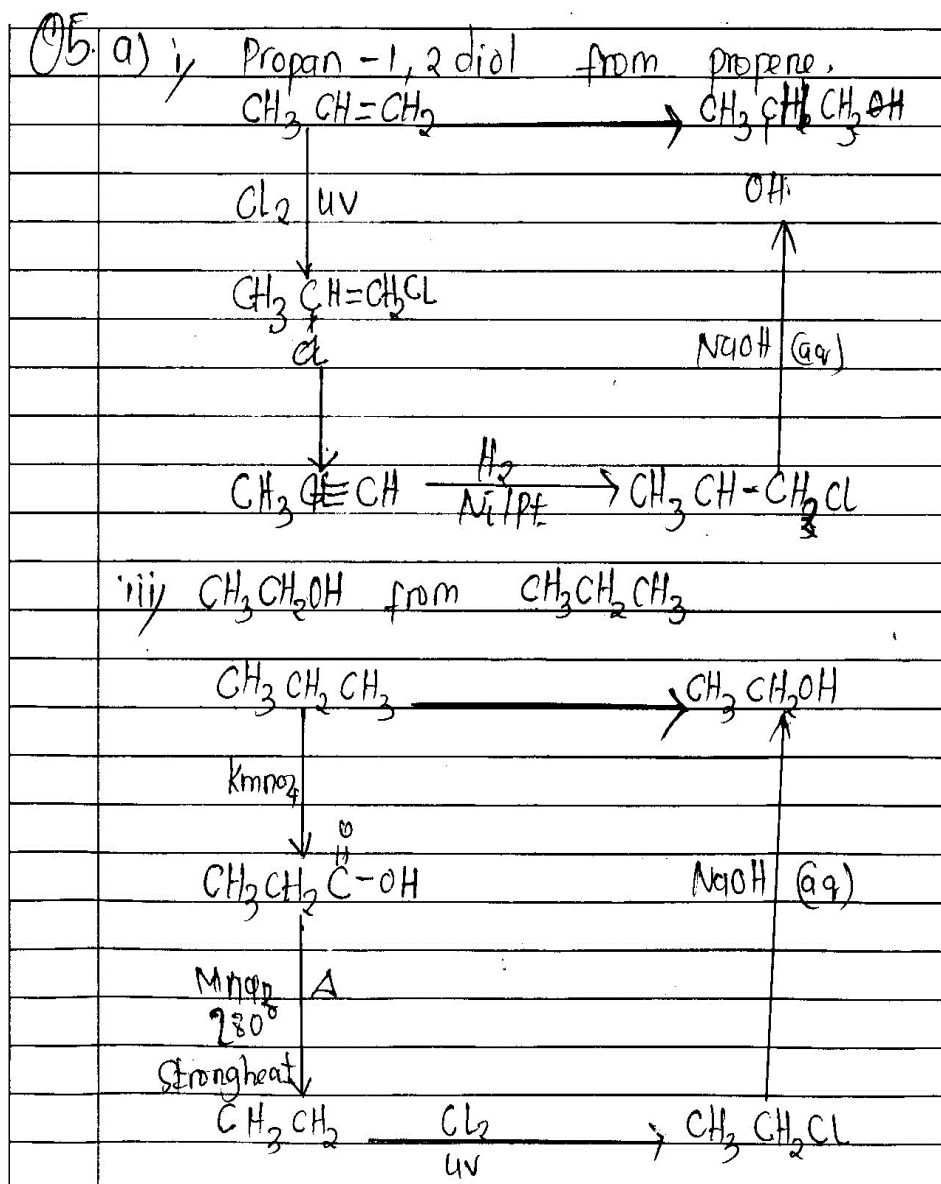 Q5. a) i, Propan - 1, 2 diol from propene.
CH3 CH=CH2 → CH3 CH CH3 OH
Cl2 | UV
OH
CH3 CH=CH2CL
Cl
NaOH (aq)
CH3 C≡CH H2 Ni/Pt → CH3 CH-CH2Cl
iii, CH3CH2OH from CH3CH2CH3
CH3 CH2 CH3 → CH3 CH2OH
Kmno4
O
CH3CH2 C-OH
NaOH (aq)
Δ
280°
Strong heat
CH3CH2 Cl2 UV → CH3 CH2Cl